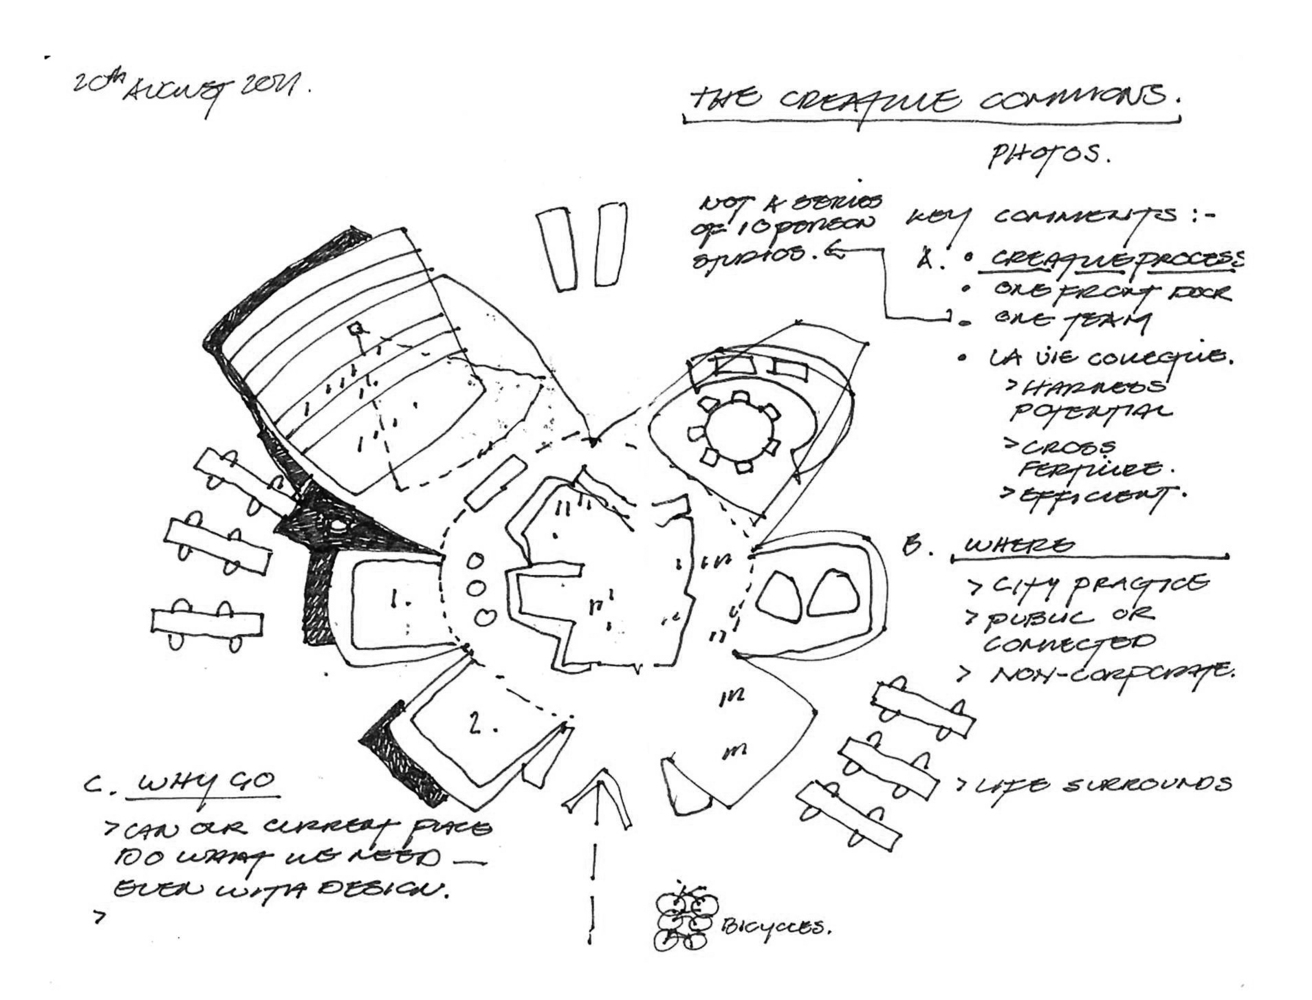 20th AUGUST 2021.
THE CREATIVE COMMONS.
PHOTOS.
NOT A SERIES
OF 10 PERSON
STUDIOS.
KEY COMMENTS :-
A. • CREATIVE PROCESS
• ONE FRONT DOOR
• ONE TEAM
• LA VIE COLLECTIVE.
> HARNESS
POTENTIAL
> CROSS
FERTILIZE.
> EFFICIENT.
B. WHERE
> CITY PRACTICE
> PUBLIC OR
CONNECTED
> NON-CORPORATE.
> LIFE SURROUNDS
1.
2.
C. WHY GO
> CAN OUR CURRENT PLACE
DO WHAT WE NEED —
EVEN WITH DESIGN.
>
BICYCLES.